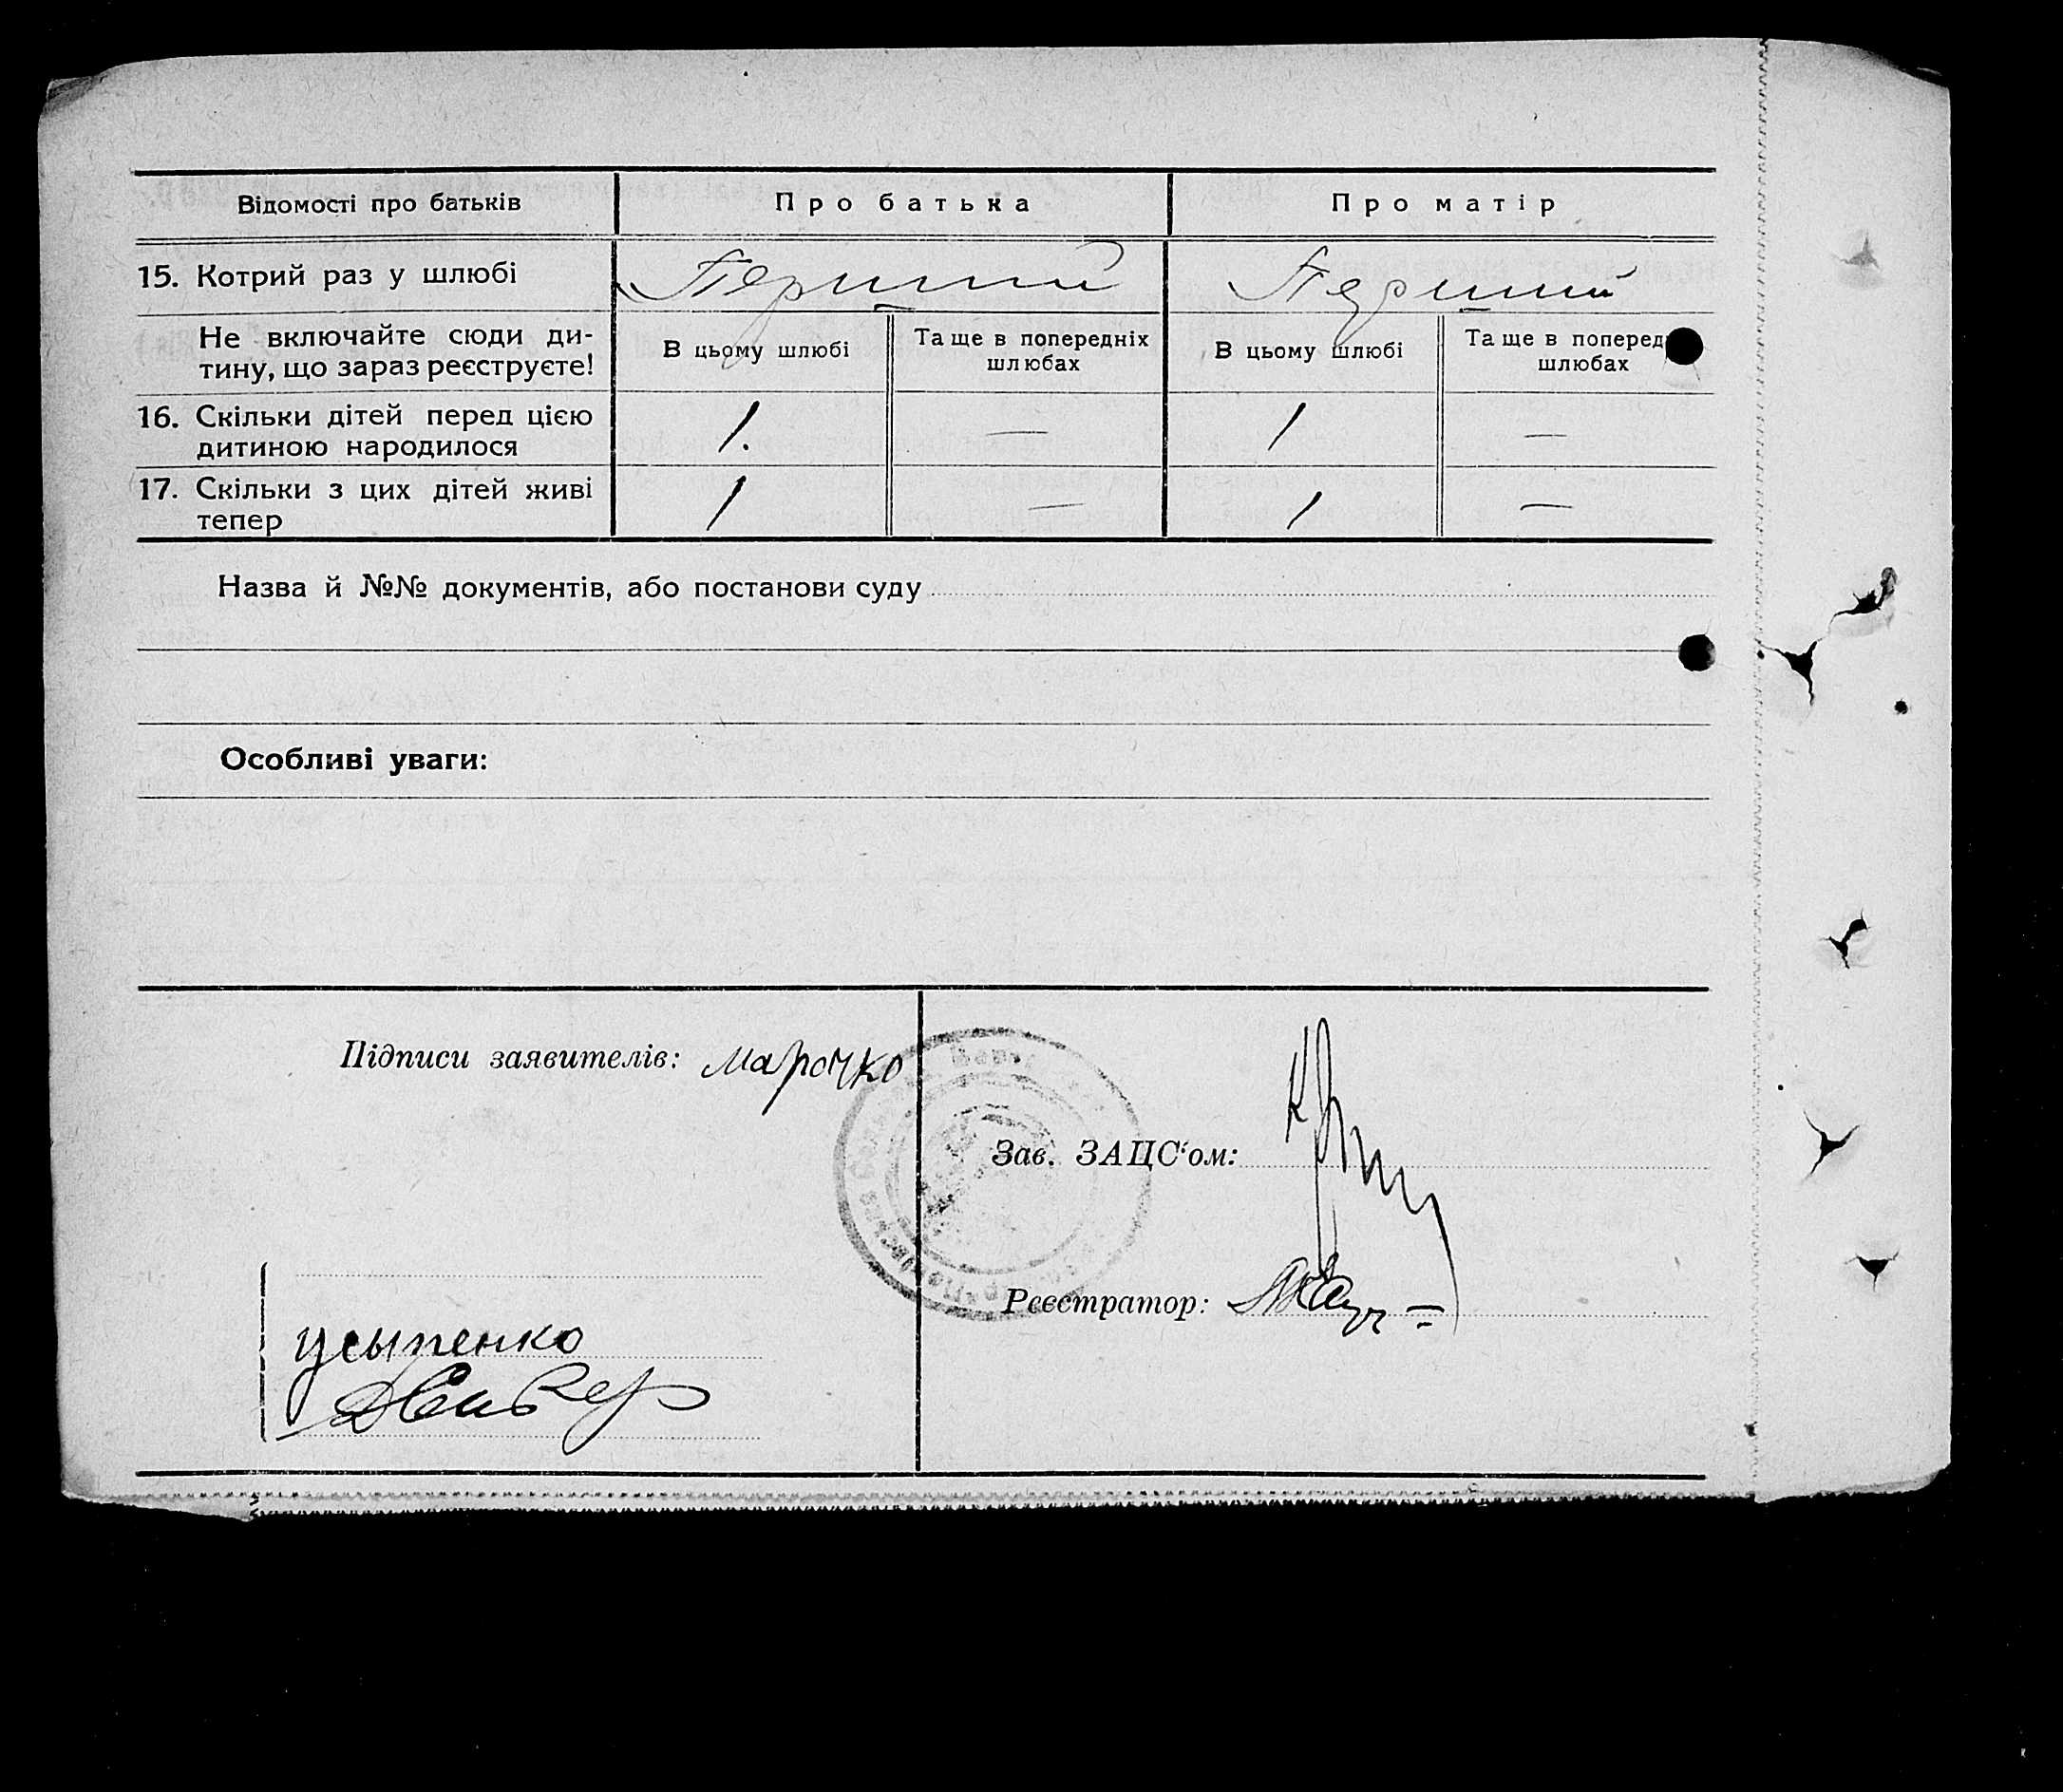 Відомості про батьків
Про батька
Про матір
15. Котрий раз у шлюбі
Перший
Перший
Не включайте сюди ди-
тину, що зараз реєструєте!
В цьому шлюбі
Та ще в попередніх
шлюбах
В цьому шлюбі
Та ще в поперед
шлюбах
16. Скільки дітей перед цією
дитиною народилося
1.
—
1
—
17. Скільки з цих дітей живі
тепер
1
—
1
—
Назва й №№ документів, або постанови суду
Особливі уваги:
Підписи заявителів: Марочко
Зав. ЗАЦС'ом:
Реєстратор:
Усыпенко